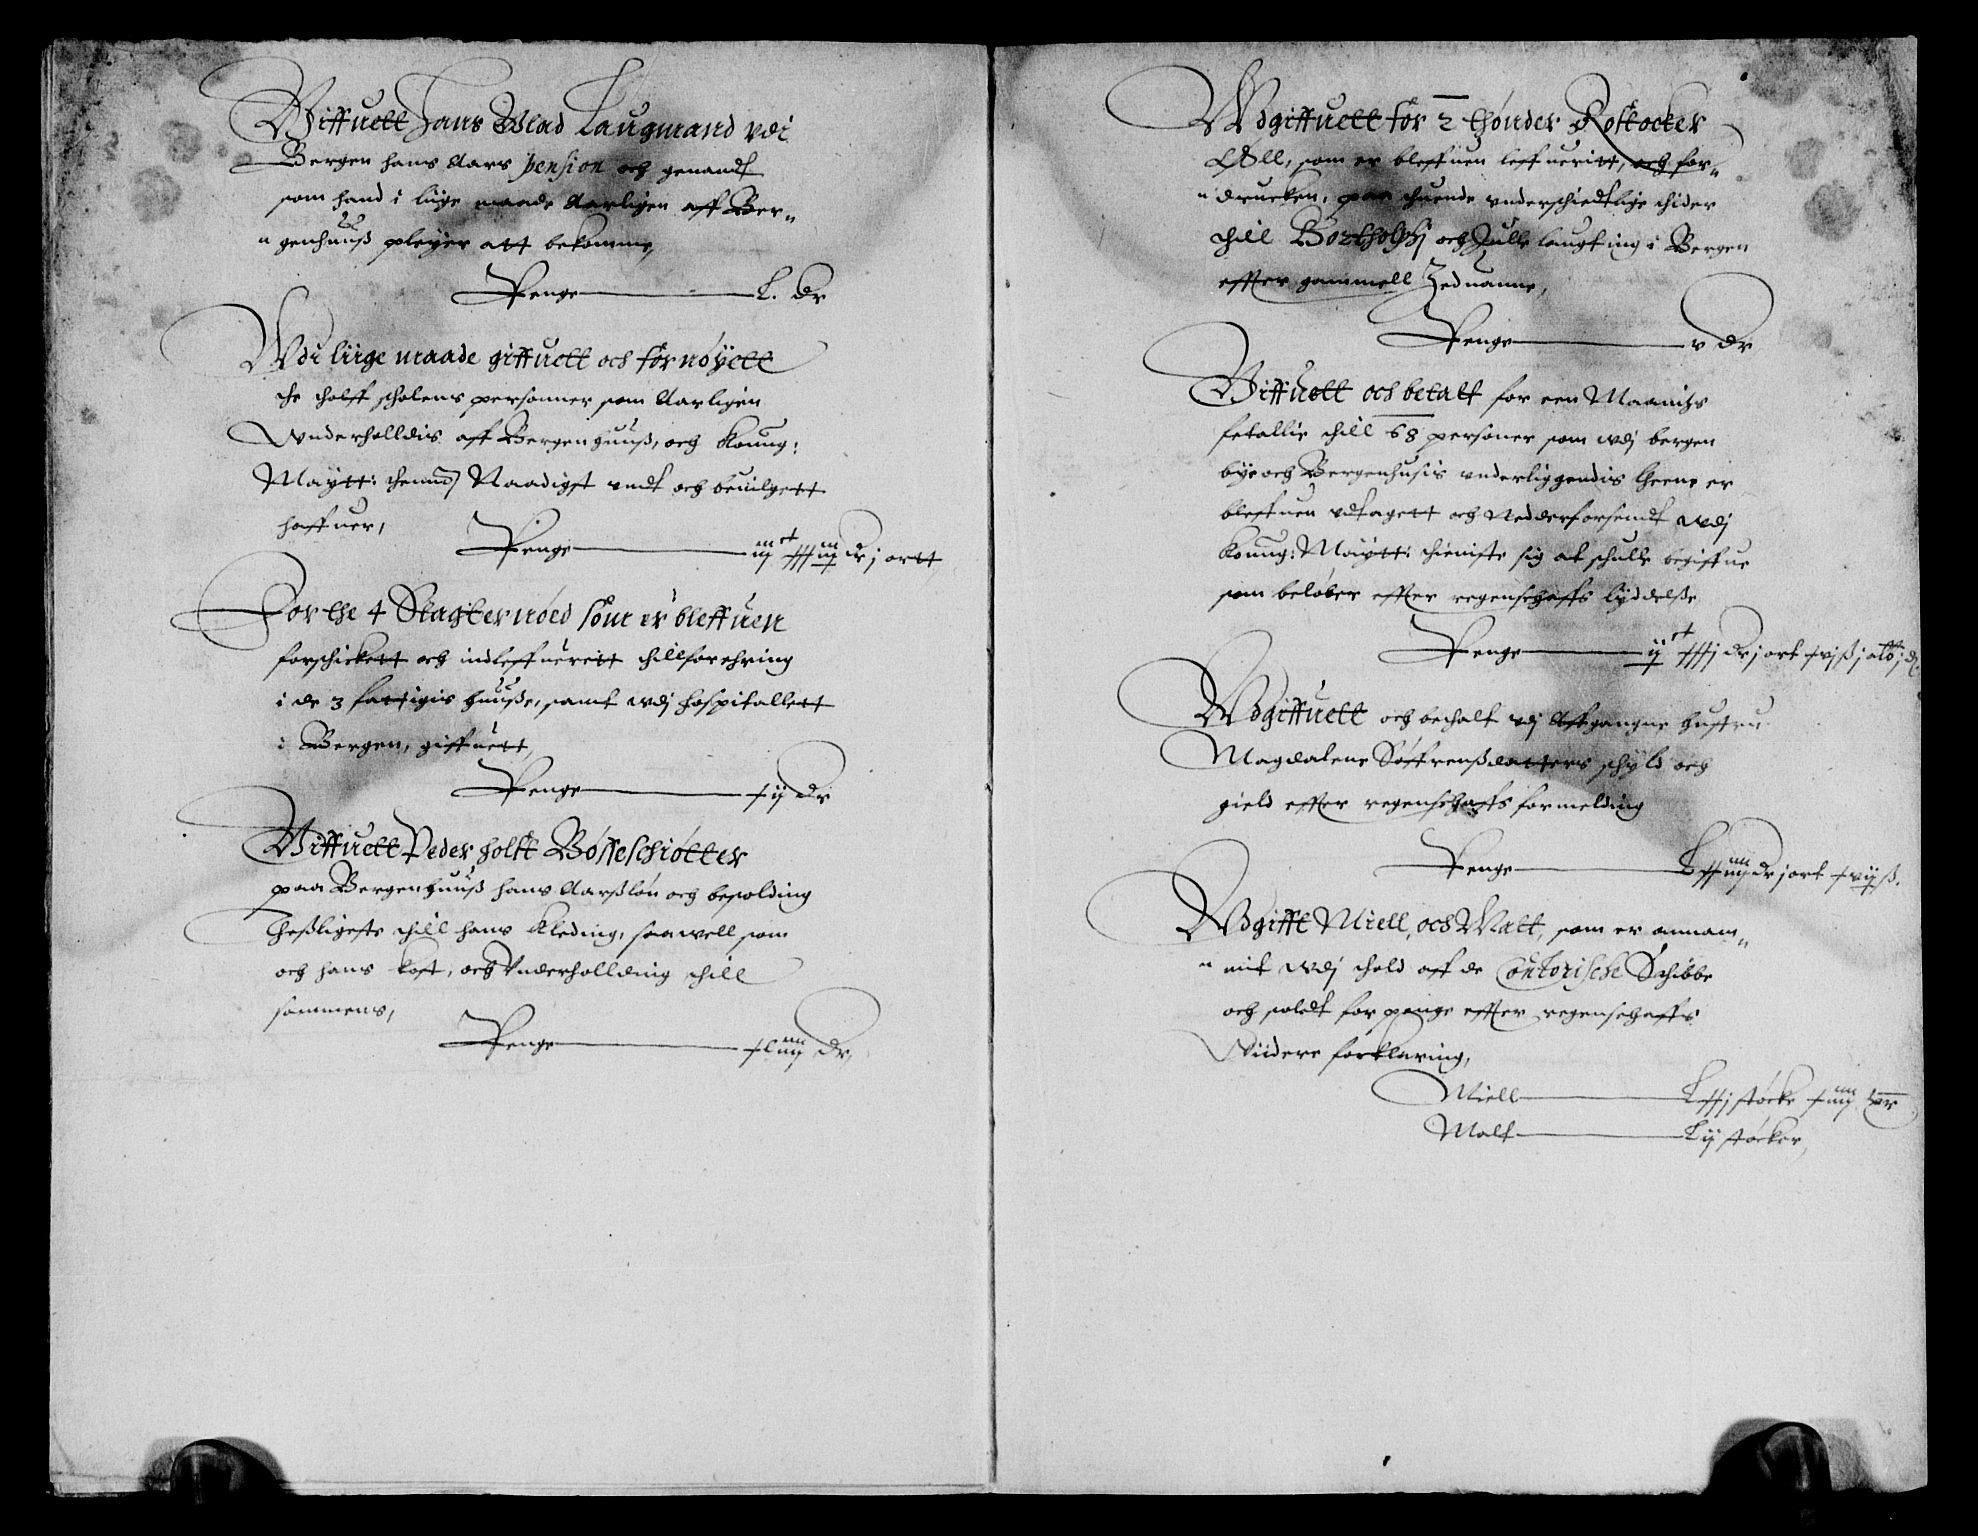 Giffuett Hans Glad Laugmand vdi
Bergen hans Aars pension och genandt
som hand i liige maade Aarligen aff Ber„
„ genhuuß pleyer att bekomme,
Penge L. dr
Vdi liige maade giffuett och fornøyett
the tholff scholens personner som Aarligen
Vnderholldis aff Bergenhuuß, och Konng:
Maytt: thennd Naadigst vndt och beuilgett
haffuer,
Penge dr j ortt
For the 4 Slagternøed som er bleffuen
forschickett och indleffuerett thill forehring
i de 3 fattigis huuße, samt wdj hospitallett
i Bergen, giffuett,
Penge xij dr
Giffuett Peder holst Bøsseschiøtter
paa Bergenhuuß hans Aarßløn och besolding
theßligeste thill hans Kleding, saawell som
och hans Kost, och Vnderhollding thill
sammens,
Penge xlviij dr,
Wdgiffuett for 2 thønder Rostocker
Øll, som er bleffuen leffueritt, och for„
„ drucken, paa thuende vnderschiedtlige thider
thill Botholphj och Julle laugting i Bergen
effter gammell Seduanne,
Penge v dr
Giffuett och betalt for een Maanitzs
fetallie thill 68 personer som wdj bergen
bye och Bergenhusis vnderliggendis lheene er
bleffuen vdtagett och Nedderforsendt wdj
Konng: Maytt: thieniste sig at schulle begiffue
som beløber effter regenschaffs lyddelße
Penge
Wdgiffuett och bethalt vdj Affgangne hustru
Magdalene Søffrenßdatters schyld och
gield effter regenschaffs formelding
Penge dr j ort xvij ß.
Wdgifft Miell, och Malt, som er annam„
„ mit wdj thold aff de Contorische Schibbe
och soldt for penge effter regenschaffs
Viidere forklaring,
Miell støcke
Malt Lij støcker,